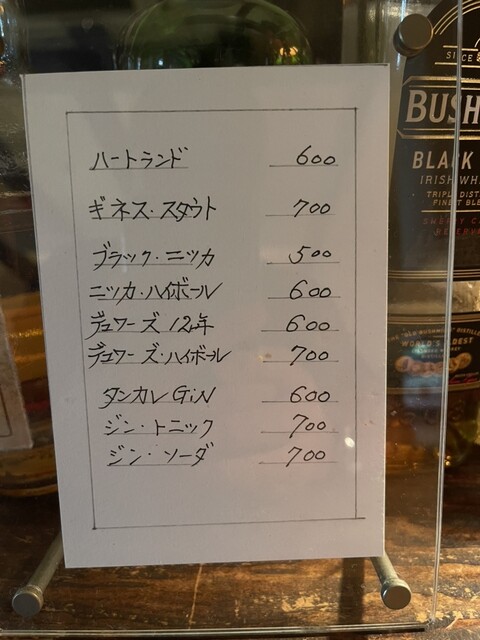 ハートランド 600
ギネス・スタウト 700
ブラック・ニッカ 500
ニッカ・ハイボール 600
デュワーズ 12年 600
デュワーズ・ハイボール 700
タンカレ GiN 600
ジン・トニック 700
ジン・ソーダ 700
SINCE
BUSH
BLACK
IRISH WH
TRIPLE DIST
FINEST BLE